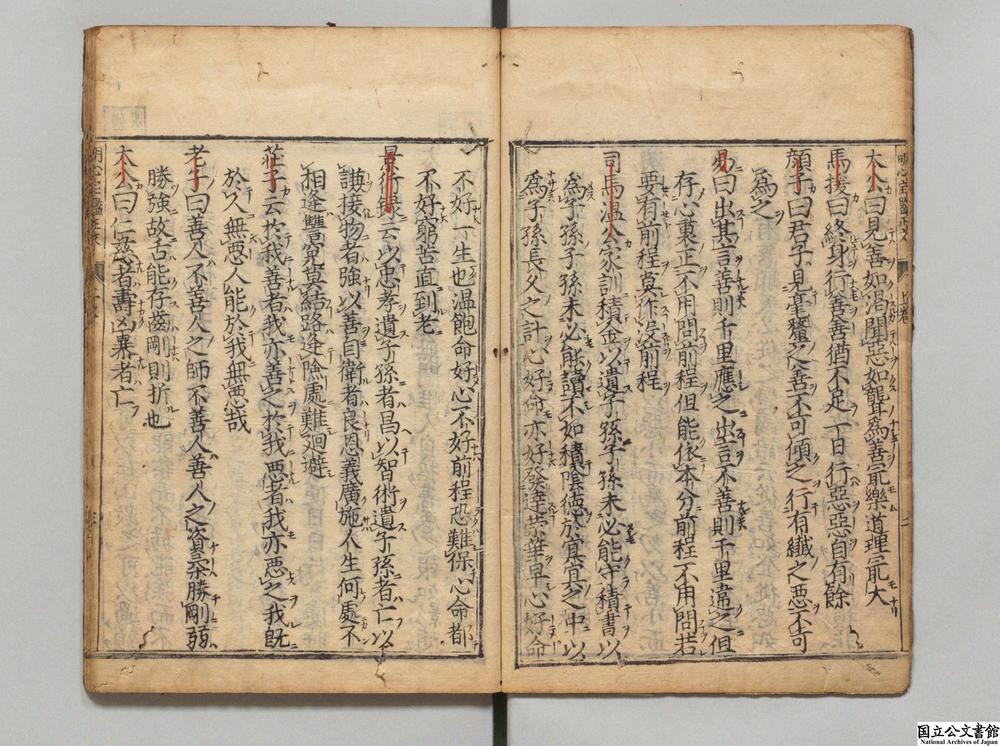 太公曰見善如渴聞惡如聾爲善最樂道理最大
馬援曰終身行善善猶不足一日行惡惡自有餘
顔子曰君子見毫釐之善不可傾之行有纖之惡不可
爲之
易曰出其言善則千里應之出言不善則千里違之但
存心裏正不用問前程但能依本分前程不用問若
要有前程莫作没前程
司馬温公家訓積金以遺子孫子孫未必能守積書以
遺子孫子孫未必能讀不如積陰德於冥冥之中以
爲子孫長久之計心好命亦好發達榮華早心好命
不好一生也温飽命好心不好前程恐難保心命都
不好窮苦直到老
景行録云以忠孝遺子孫者昌以智術遺子孫者亡以
謙接物者強以善自衛者良恩義廣施人生何處不
相逢讐冤莫結路逢險處難迴避
莊子云於我善者我亦善之於我惡者我亦惡之我既
於人無惡人能於我無惡哉
老子曰善人不善人之師不善人善人之資柔勝剛弱
勝強故舌能存齒剛則折也
太公曰仁慈者壽凶暴者亡
国立公文書館
National Archives of Japan